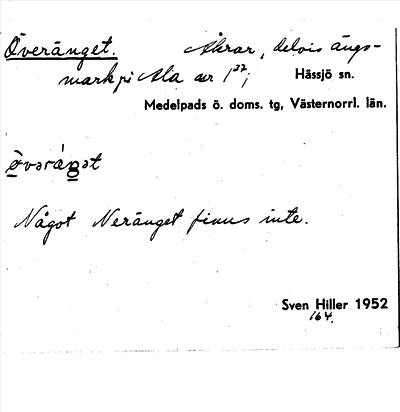 Överänget. Åkrar, delvis ängs-
mark på Ala 1²²; Hässjö sn.
Medelpads ö. doms. tg, Västernorrl. län.
Något Neränget finns inte.
Sven Hiller 1952
164.